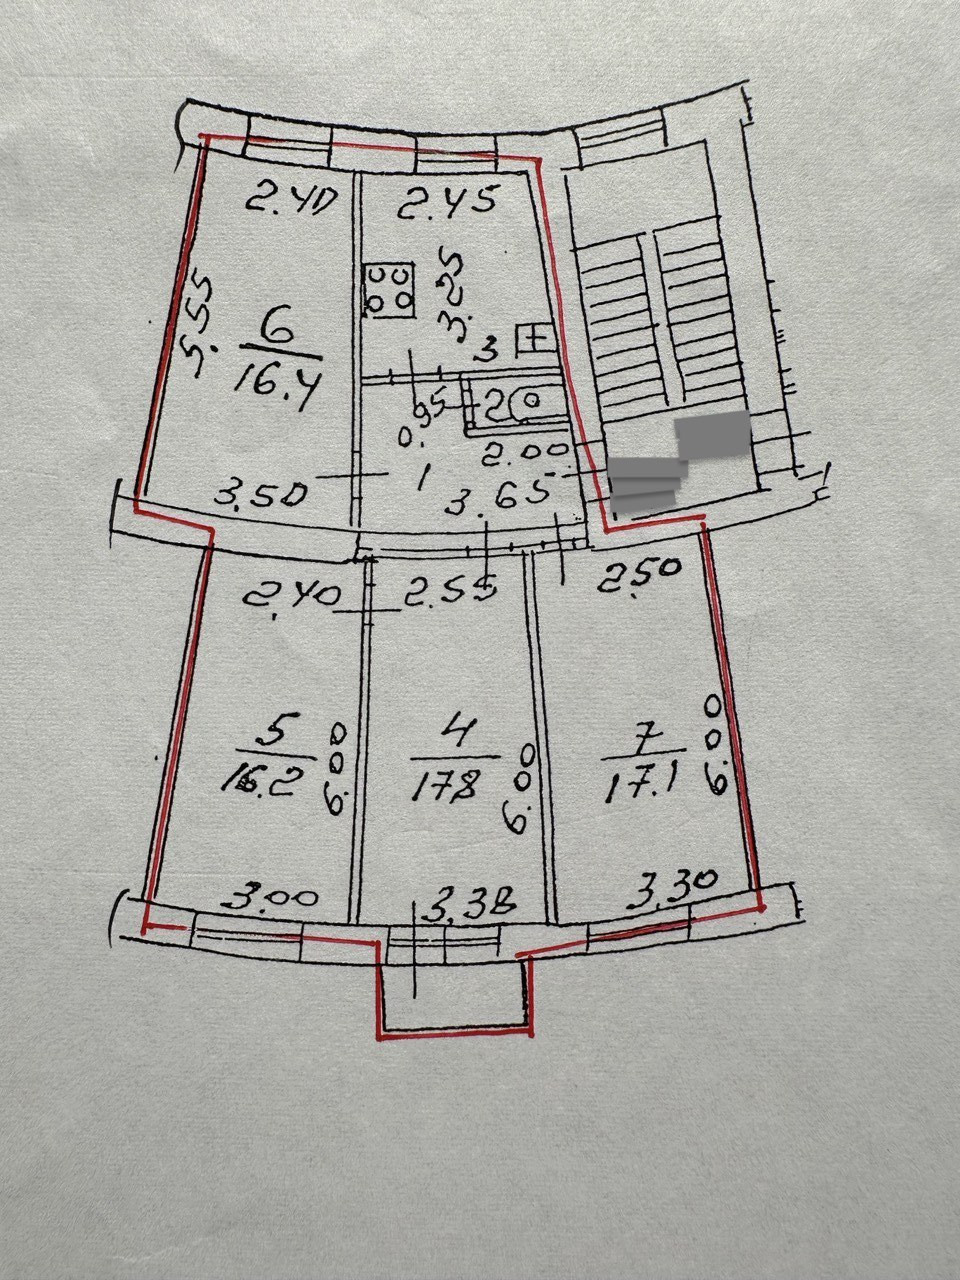 2.40 2.45
5.55
3.25
6
16.4
3
0.95
2
2.00
1
3.50
3.65
2.40 2.55 2.50
5
16.2
6.00
4
17.8
6.00
7
17.1
6.00
3.00 3.38 3.30